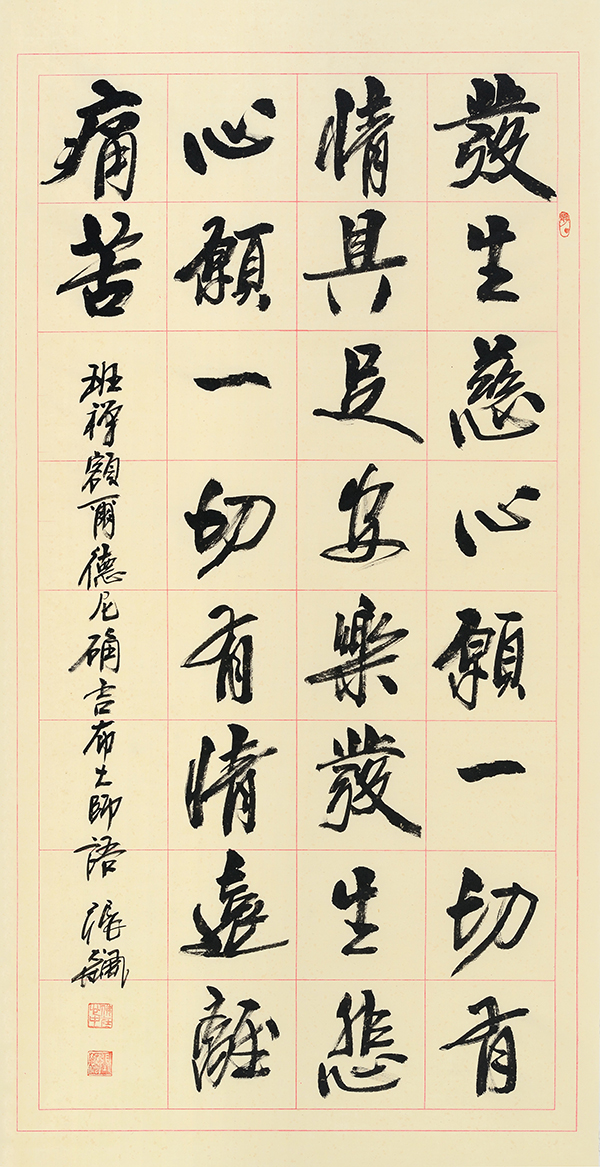 發生慈心願一切有
情具足安樂發生悲
心願一切有情遠離
痛苦
班禪額爾德尼确吉布大師語 張飆